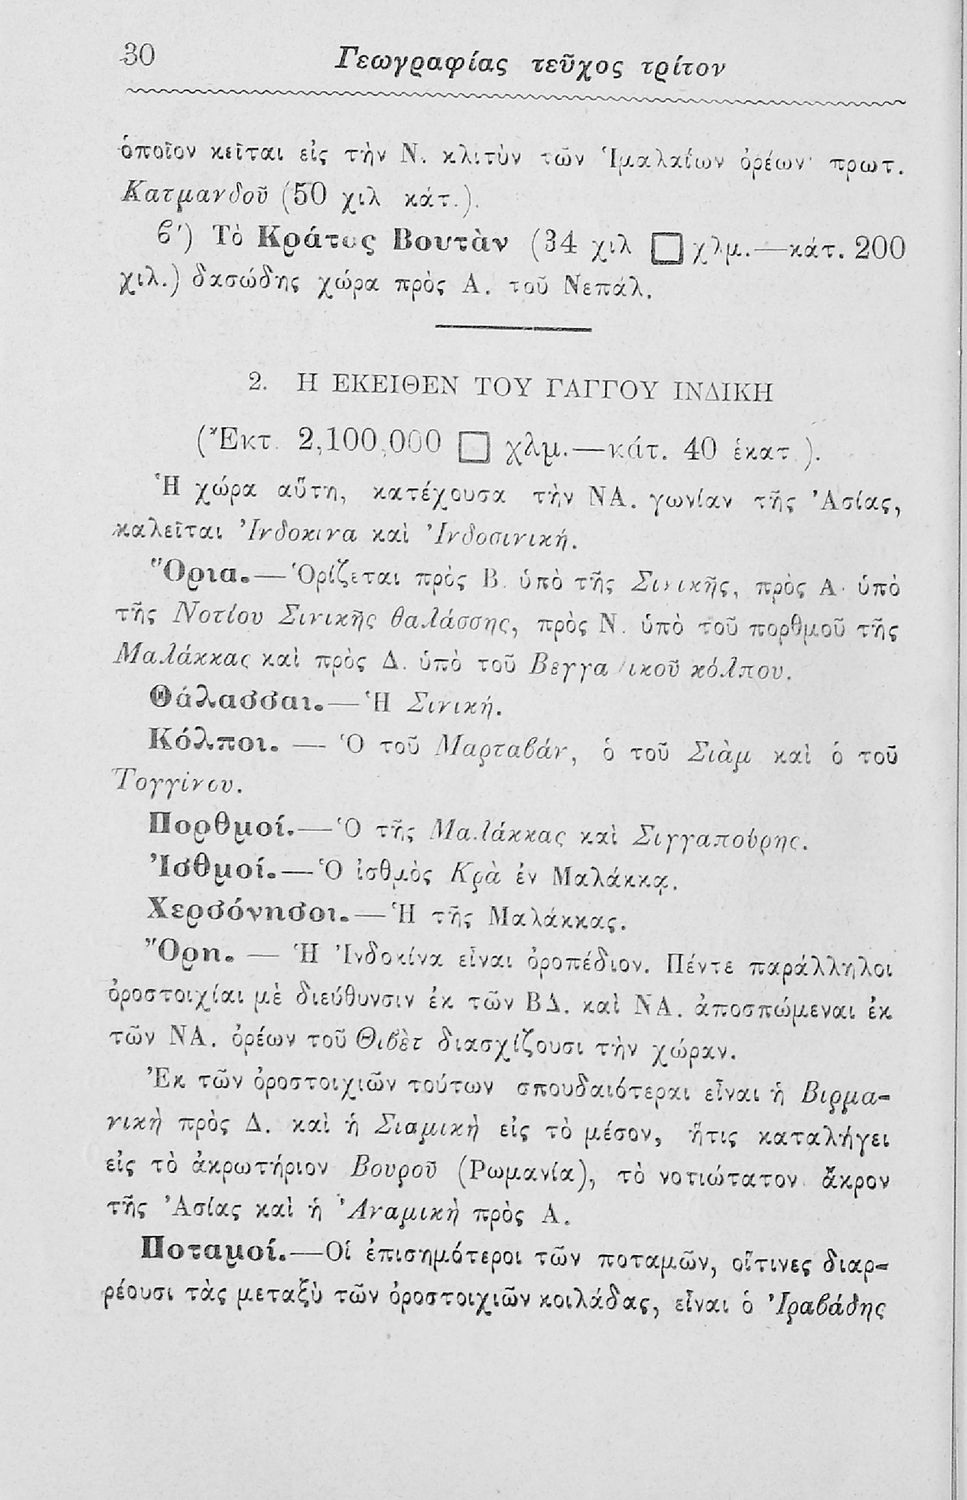 30 Γεωγραφίας τεῦχος τρίτον
ὁποῖον κεῖται εἰς τὴν Ν. κλιτὺν τῶν Ἱμαλαΐων ὀρέων· πρωτ.
Κατμανδοῦ (50 χιλ κάτ.).
ϐ′) Τὸ Κράτος Βουτὰν (34 χιλ □ χλμ.—κάτ. 200
χιλ.) δασώδης χώρα πρὸς Α. τοῦ Νεπάλ.
2. Η ΕΚΕΙΘΕΝ ΤΟΥ ΓΑΓΓΟΥ ΙΝΔΙΚΗ
(Ἔκτ. 2,100,000 □ χλμ.—κάτ. 40 ἑκατ.).
Ἡ χώρα αὕτη, κατέχουσα τὴν ΝΑ. γωνίαν τῆς Ἀσίας,
καλεῖται Ἰνδοκινα καὶ Ἰνδοσινική.
Ὅρια.—Ὁρίζεται πρὸς Β. ὑπὸ τῆς Σινικῆς, πρὸς Α· ὑπὸ
τῆς Νοτίου Σινικῆς θαλάσσης, πρὸς Ν. ὑπὸ τοῦ πορθμοῦ τῆς
Μαλάκκας καὶ πρὸς Δ. ὑπὸ τοῦ Βεγγαλικοῦ κόλπου.
Θάλασσαι.—Ἡ Σινική.
Κόλποι. — Ὁ τοῦ Μαρταϐάν, ὁ τοῦ Σιὰμ καὶ ὁ τοῦ
Τογγίνου.
Πορθμοί.—Ὁ τῆς Μαλάκκας καὶ Σιγγαπούρης.
Ἰσθμοί.—Ὁ ἰσθμὸς Κρὰ ἐν Μαλάκκᾳ.
Χερσόνησοι.—Ἡ τῆς Μαλάκκας.
Ὄρη. — Ἡ Ἰνδοκίνα εἶναι ὀροπέδιον. Πέντε παράλληλοι
ὀροστοιχίαι μὲ διεύθυνσιν ἐκ τῶν ΒΔ. καὶ ΝΑ. ἀποσπώμεναι ἐκ
τῶν ΝΑ. ὀρέων τοῦ Θιϐὲτ διασχίζουσι τὴν χώραν.
Ἐκ τῶν ὀροστοιχιῶν τούτων σπουδαιότεραι εἶναι ἡ Βιρμα-
νικὴ πρὸς Δ. καὶ ἡ Σιαμικὴ εἰς τὸ μέσον, ἥτις καταλήγει
εἰς τὸ ἀκρωτήριον Βουροῦ (Ρωμανία), τὸ νοτιώτατον ἄκρον
τῆς Ἀσίας καὶ ἡ Ἀναμικὴ πρὸς Α.
Ποταμοί.—Οἱ ἐπισημότεροι τῶν ποταμῶν, οἵτινες διαρ-
ρέουσι τὰς μεταξὺ τῶν ὀροστοιχιῶν κοιλάδας, εἶναι ὁ Ἰραϐάδης